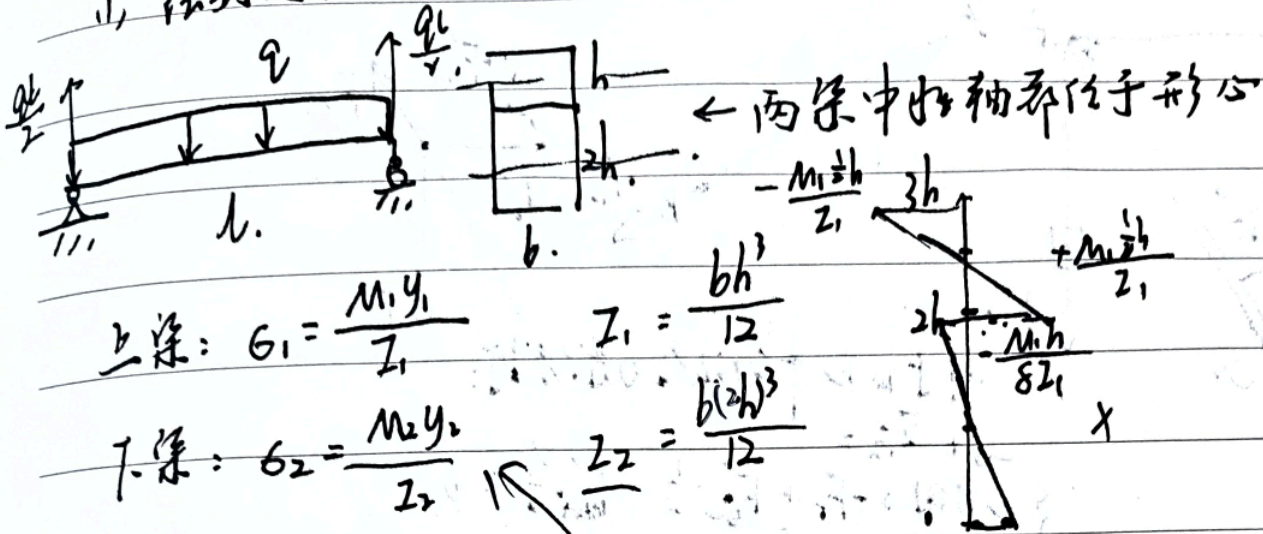 qL/2
q
qL/2
h
2h
l.
b.
← 两梁中性轴都位于形心
-M₁½h/I₁
3h
+M₁½h/I₁
2h
-M₁h/8I₁
x
上梁: σ₁ = M₁y₁/I₁ I₁ = bh³/12
下梁: σ₂ = M₂y₂/I₂ I₂ = b(2h)³/12